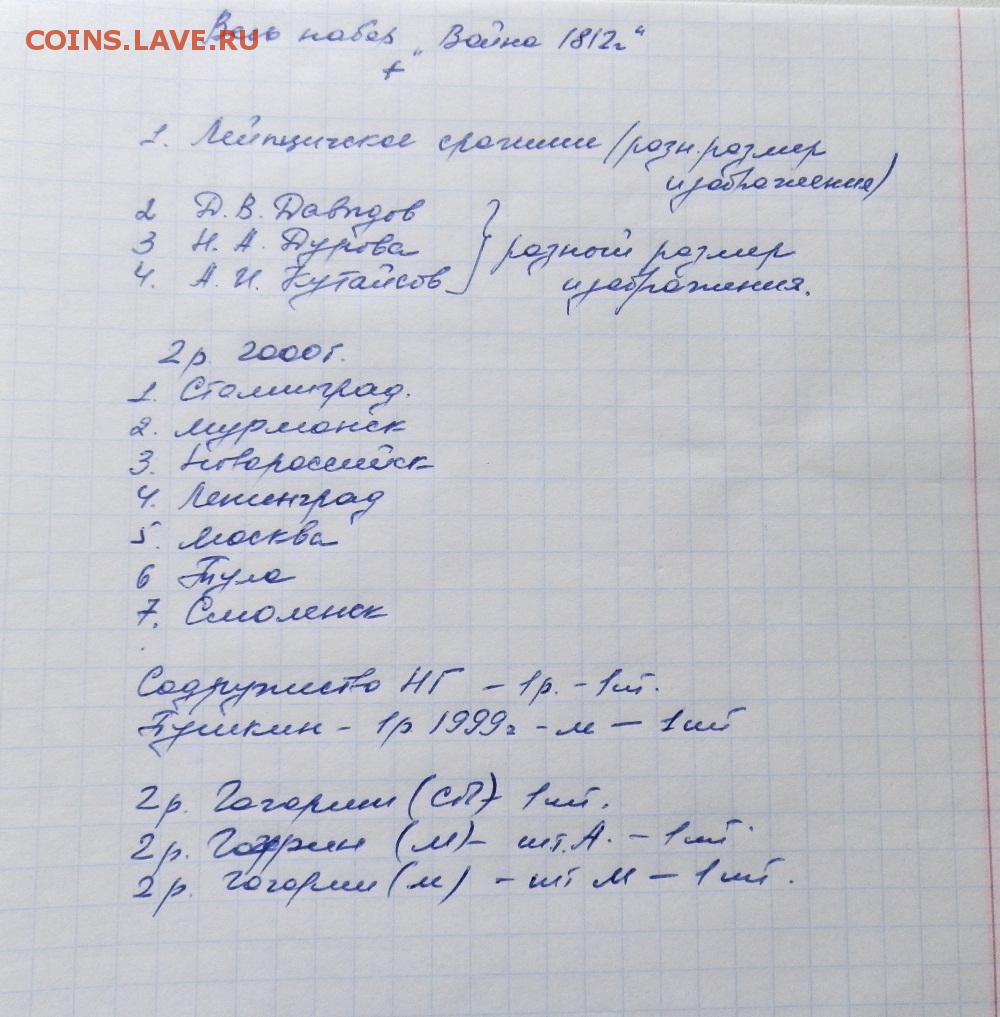 COINS.LAVE.RU
Весь набор „Война 1812г“
+
1. Лейпцигское сражение (разн. размер
изображения)
2 Д. В. Давыдов
3 Н. А. Дурова
4. А. И. Кутайсов
разный размер
изображения.
2 р. 2000г.
1. Сталинград.
2. Мурманск
3. Новороссийск
4. Ленинград
5. Москва
6 Тула
7. Смоленск
Содружество НГ – 1р. – 1шт.
Пушкин – 1р. 1999г – м – 1шт
2р. Гагарин (СП) – 1шт.
2р. Гагарин (м) – шт. А. – 1шт.
2р. Гагарин (м) – шт М – 1шт.